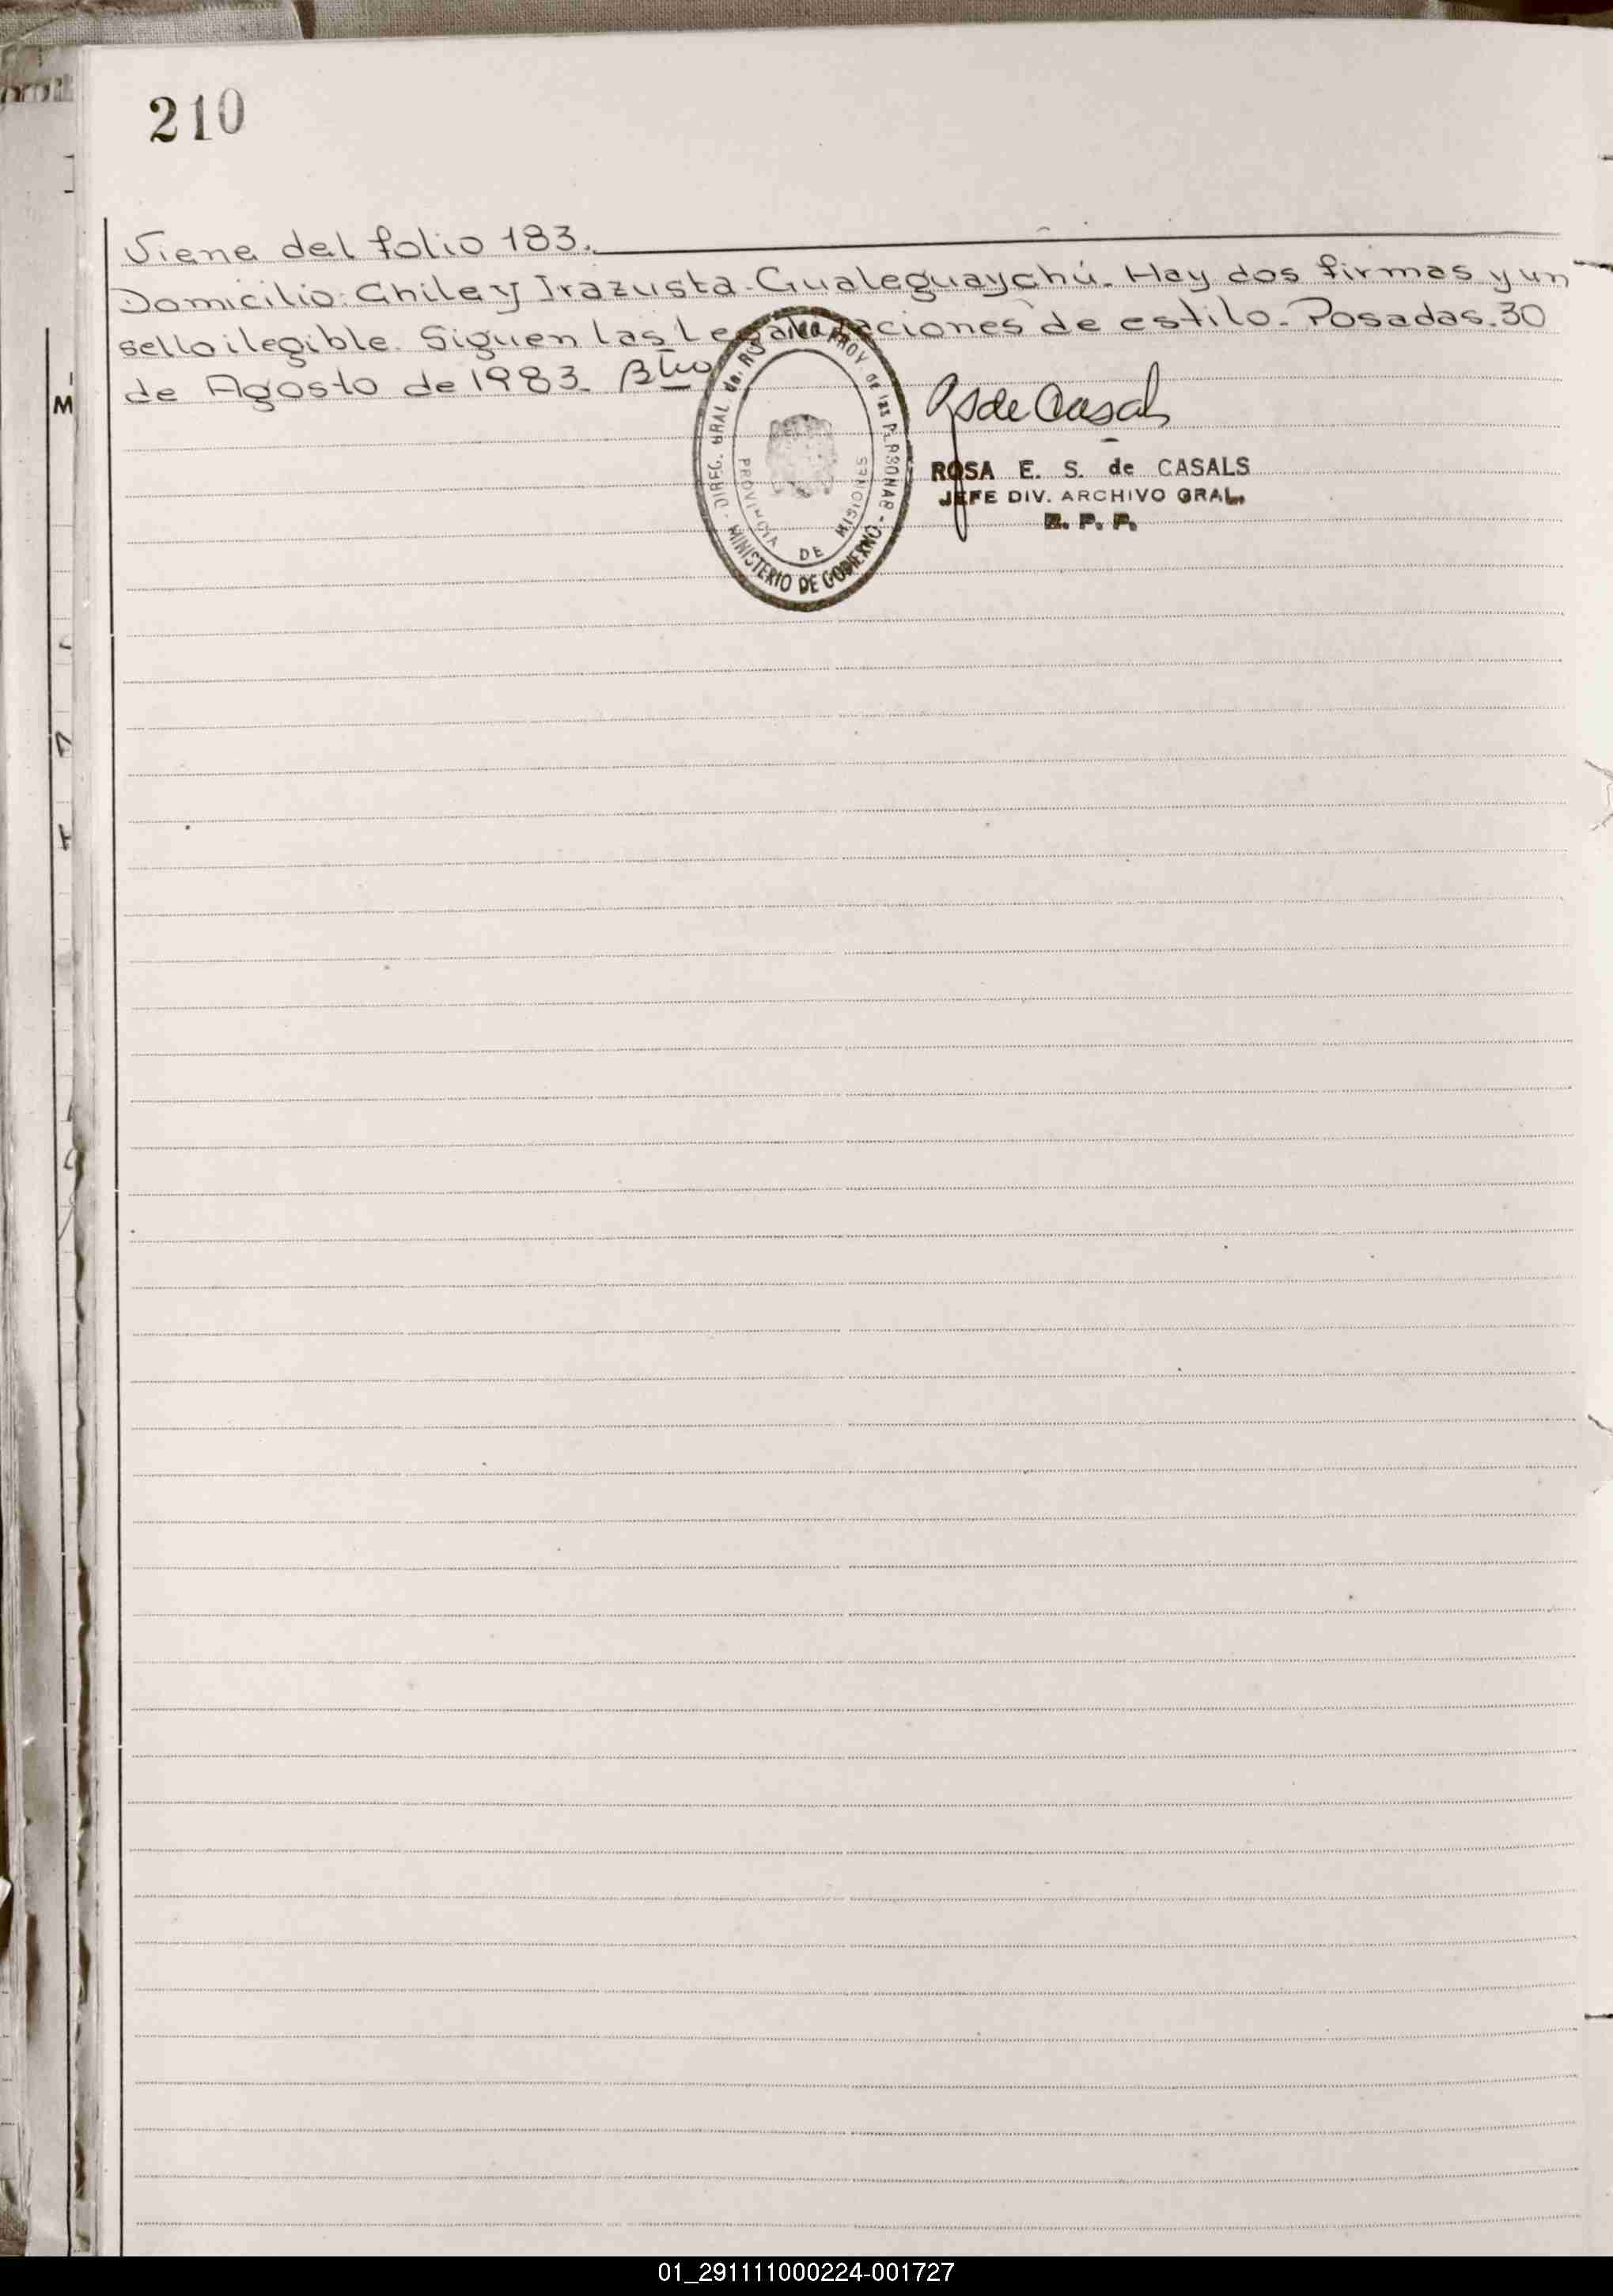 210
Viene del folio 183.
Domicilio: Chile y Irazusta. Gualeguaychú. Hay dos firmas y un
sello ilegible. Siguen las Legalizaciones de estilo. Posadas. 30
de Agosto de 1983.
DIREC. GRAL de PROV. de las PERSONAS
MINISTERIO DE GOBIERNO
PROVINCIA DE MISIONES
ROSA E. S. de CASALS
JEFE DIV. ARCHIVO GRAL.
M
01_291111000224-001727